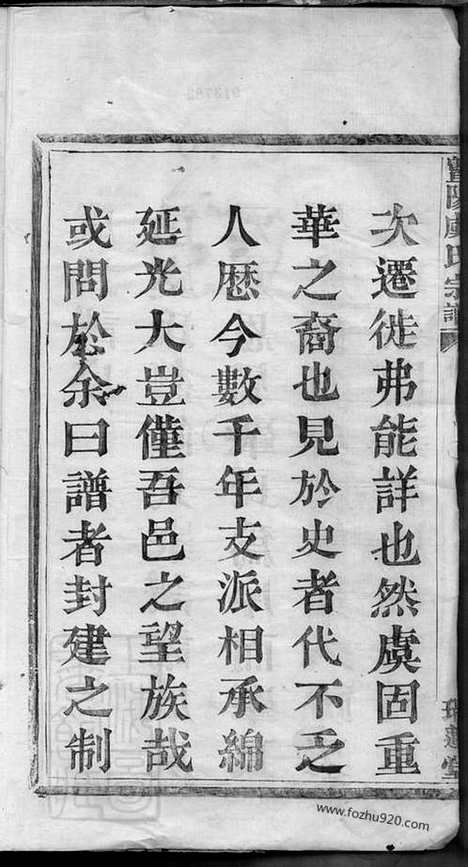 次遷徙弗能詳也然虞固重
華之裔也見於史者代不乏
人厯今數千年支派相承綿
延光大豈僅吾邑之望族哉
或問於余曰譜者封建之制
暨陽虞氏宗譜
www.fozhu920.com